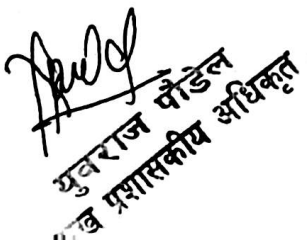 युवराज पौडेल
ख प्रशासकीय अधिकृत